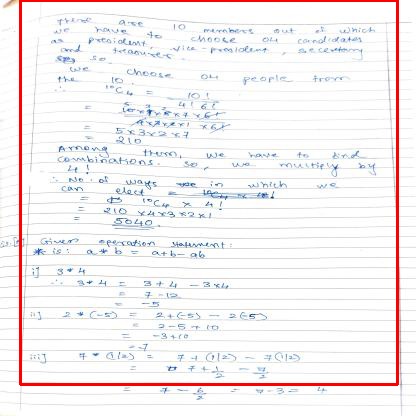 There are 10 members out of which
we have to choose 04 candidates
as president, vice-president, secretary
and treasurer.
so
We choose 04 people from
the 10.
∴ ¹⁰C₄ = 10!
4! 6!
=
=
= 5×3×2×7
= 210
Among them, we have to find
combinations. So, we multiply by
4!
∴ No. of ways in which we
can elect =
= ¹⁰C₄ × 4!
= 210 ×4×3×2×1
= 5040.
Given operation statement:
* is: a * b = a+b-ab
i] 3 * 4
∴ 3 * 4 = 3 + 4 - 3×4
= 7-12
= -5
ii] 2 * (-5) = 2+(-5) - 2(-5)
= 2-5+10
= -3+10
= 7
iii] 7 * (1/2) = 7 + (1/2) - 7(1/2)
= 7 + 1/2 - 7/2
= 7 - 6/2 = 7-3 = 4